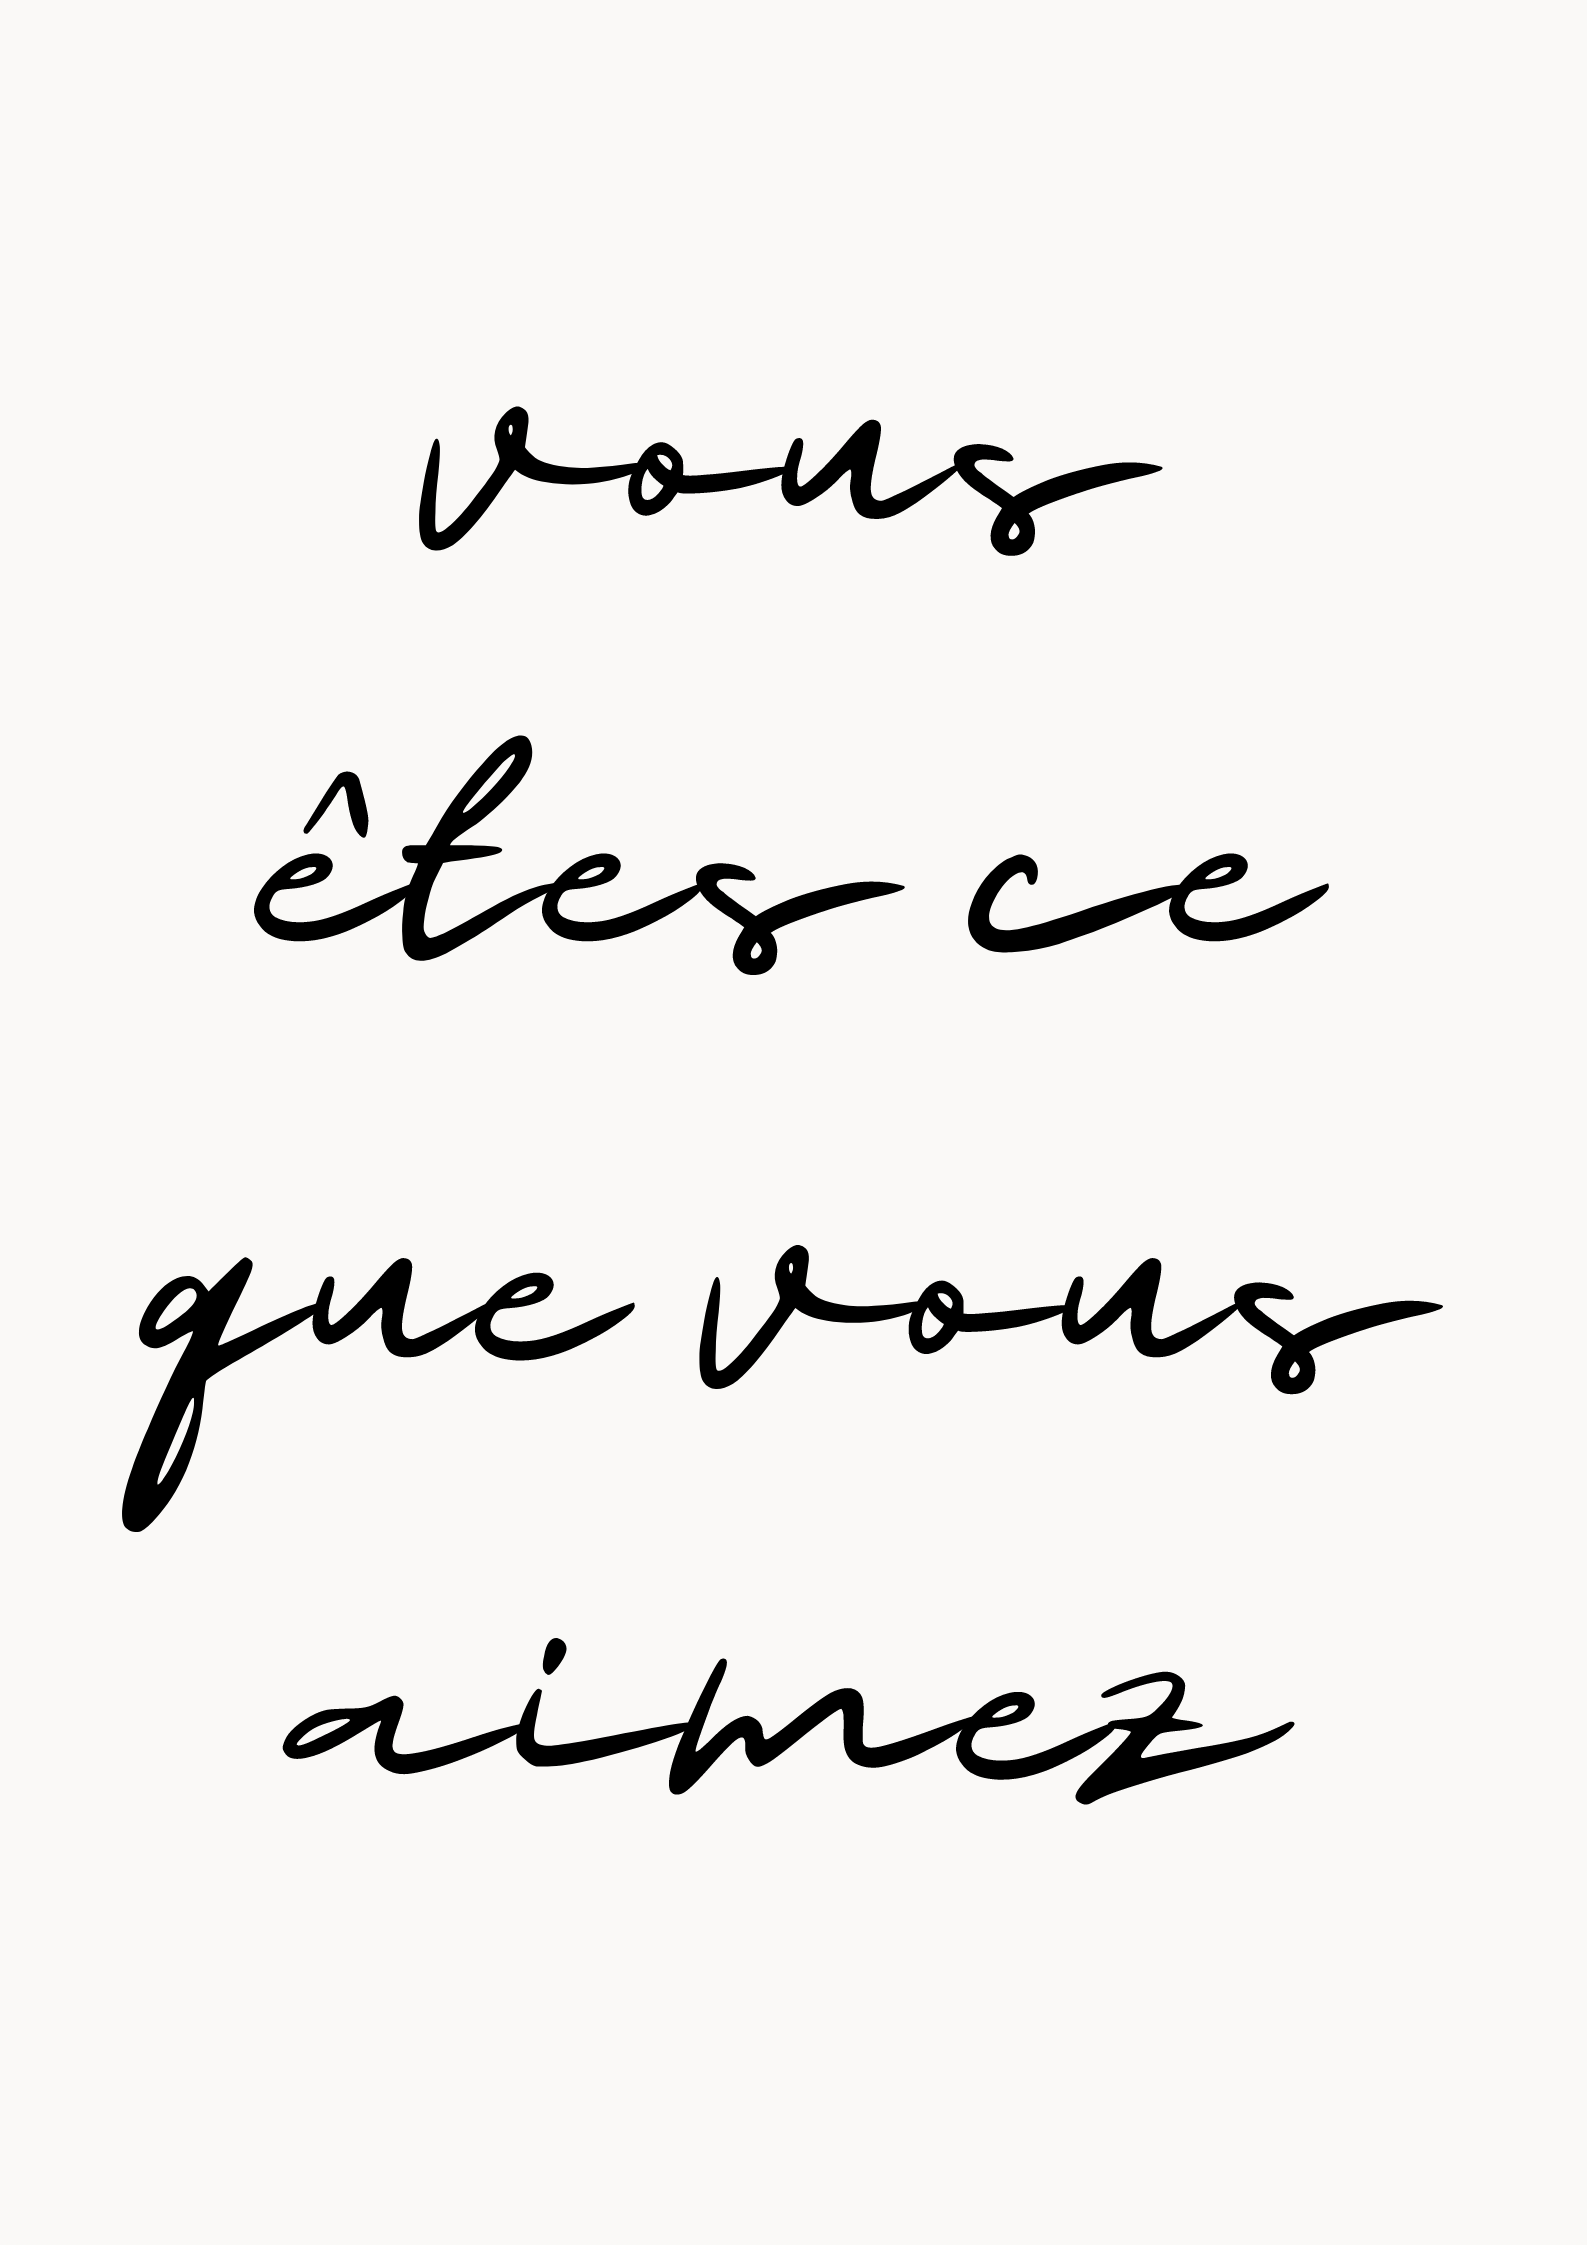 vous
êtes ce
que vous
aimez